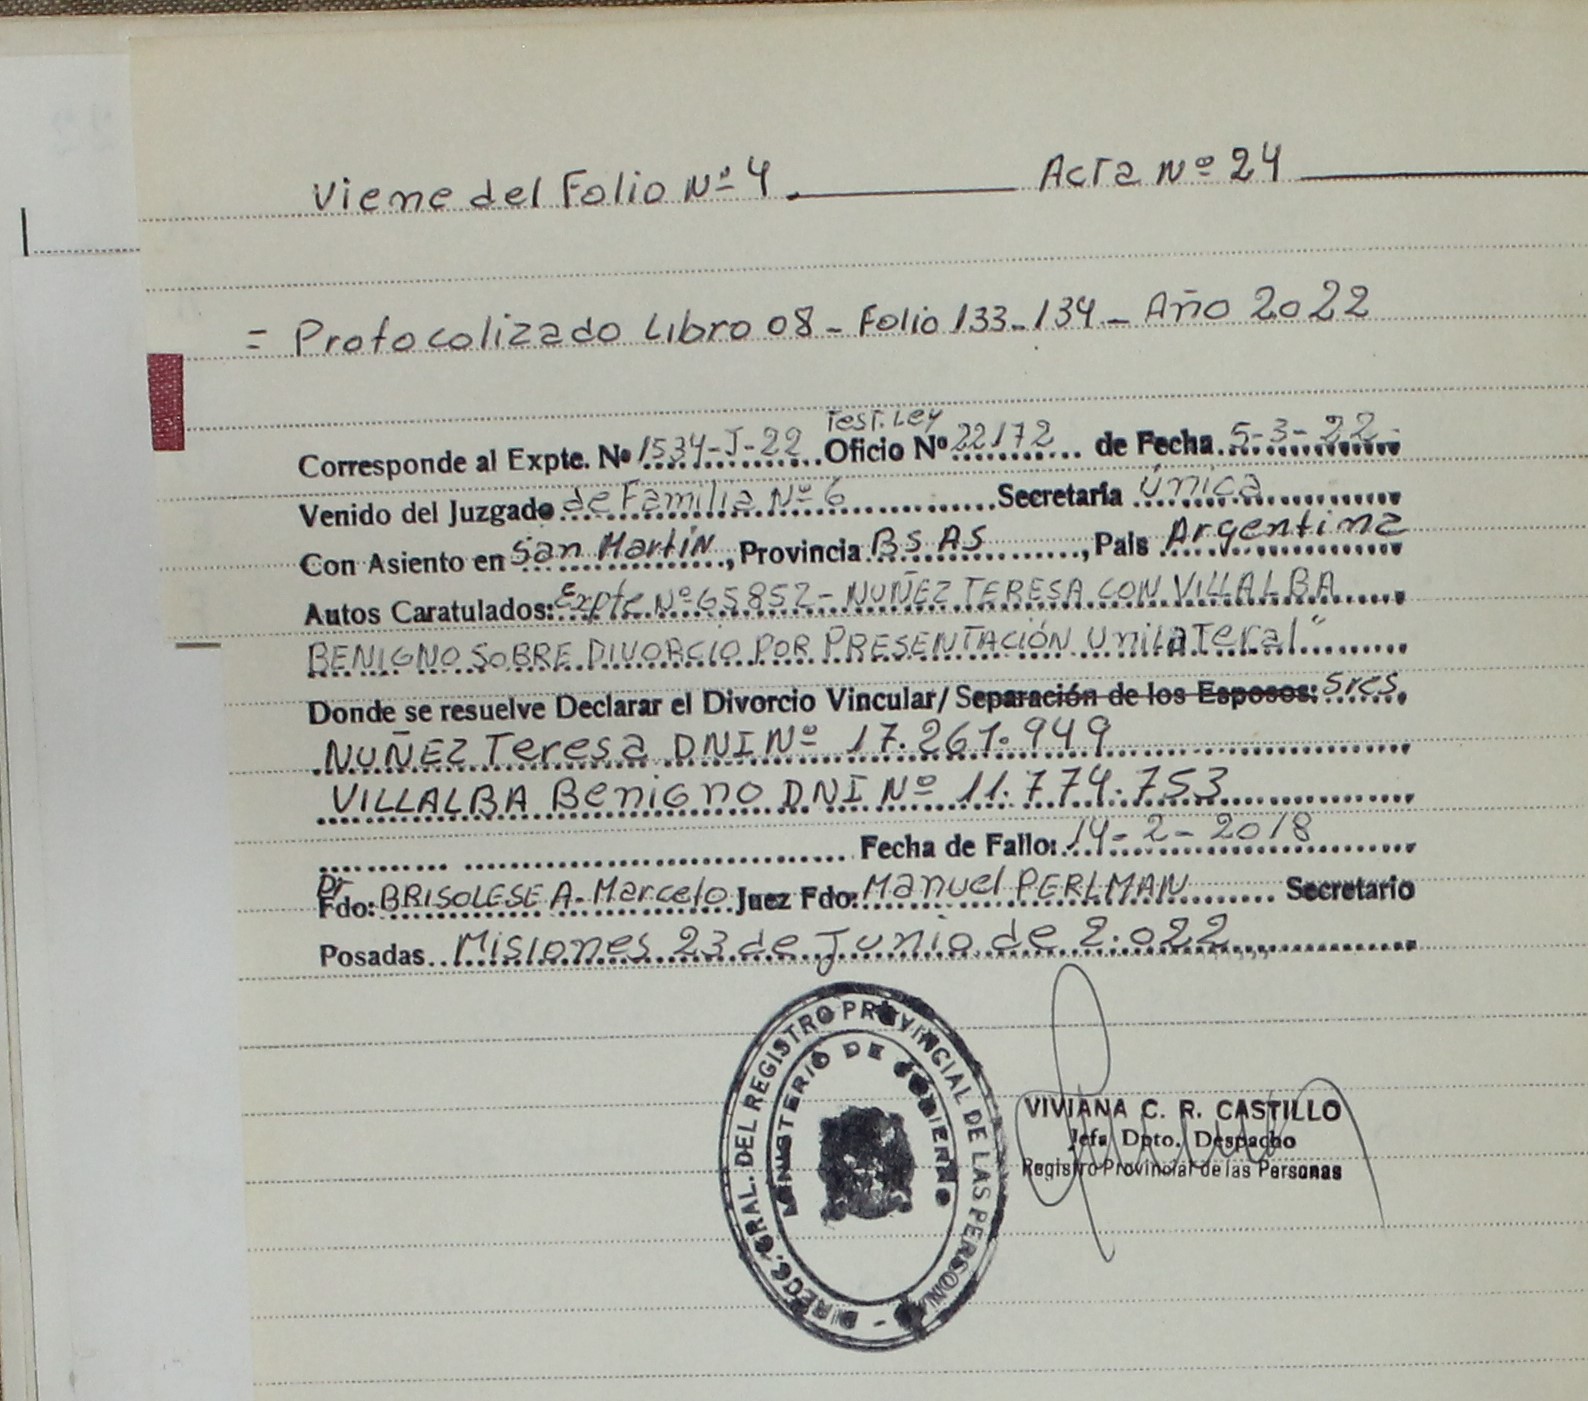 Viene del Folio Nº 4 Acta Nº 24
= Protocolizado Libro 08 - Folio 133-134 - Año 2022
Test. Ley
Corresponde al Expte. Nº 1534-J-22 Oficio Nº 22172 de Fecha 5-3-22-
Venido del Juzgado de Familia Nº 6 Secretaría Única
Con Asiento en San Martín, Provincia Bs As, País Argentina
Autos Caratulados: Expte Nº 65852 - NUÑEZ TERESA CON VILLALBA
BENIGNO SOBRE DIVORCIO POR PRESENTACIÓN Unilateral"
Donde se resuelve Declarar el Divorcio Vincular/ Separación de los Esposos: Sres.
NUÑEZ Teresa DNI Nº 17.261.949
VILLALBA Benigno DNI Nº 11.774.753
Fecha de Fallo: 14-2-2018
Dr
Fdo: BRISOLESE A. Marcelo Juez Fdo: Manuel PERLMAN Secretario
Posadas Misiones 23 de Junio de 2.022
DIRECC. GRAL. DEL REGISTRO PROVINCIAL DE LAS PERSONAS -
MINISTERIO DE GOBIERNO
VIVIANA C. R. CASTILLO
Jefa Dpto. Despacho
Registro Provincial de las Personas